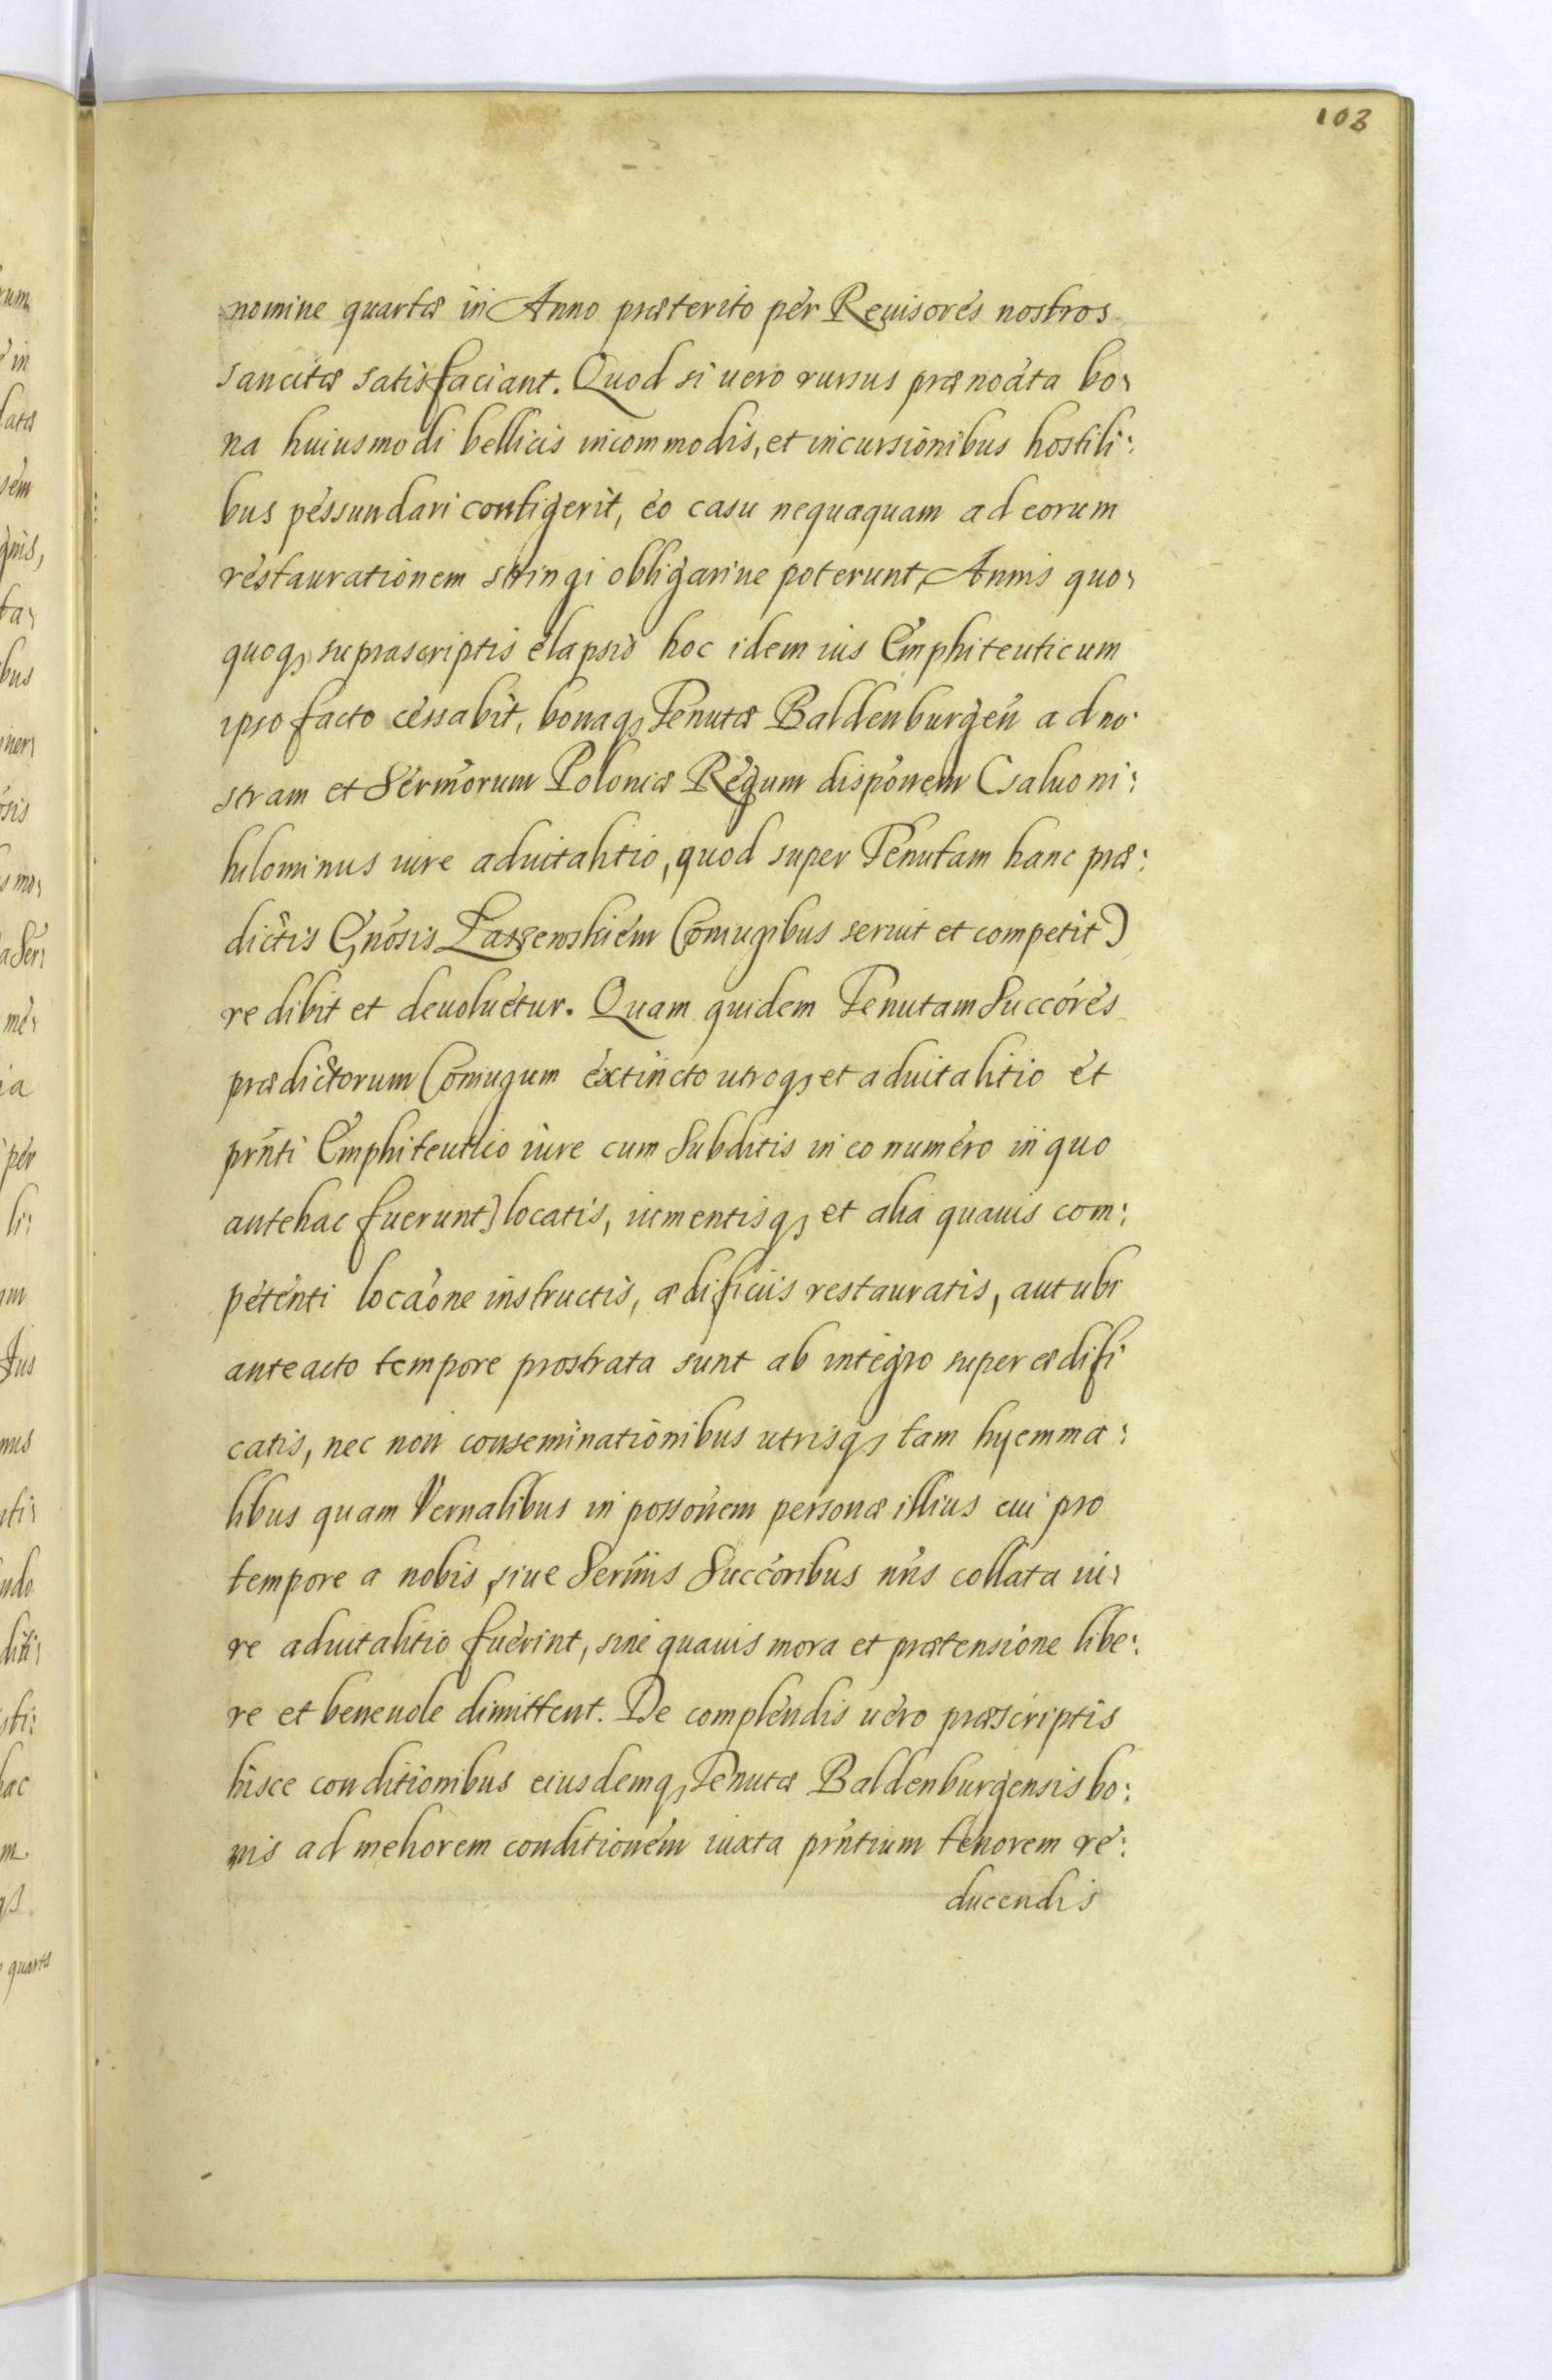 103
nomine quartæ in Anno præterito per Reuisores nostros
sancitæ satisfaciant. Quod si uero rursus prænoãta bo:
na huiusmodi bellicis incommodis, et incursionibus hostili:
bus pessundari contigerit, eo casu nequaquam ad eorum
restaurationem stringi obligariue poterunt, Annis quo:
quoqꝫ suprascriptis elapsis hoc idem ius Emphiteuticum
ipso facto cessabit, bonaqꝫ Tenutæ Baldenburgeñ ad no:
stram et Sermorum Poloniæ Regum disponem (saluo ni:
hilominus iure aduitalitio, quod super Tenutam hanc præ:
dictis Gnosis Laszenskiem Coniugibus seruit et competit)
redibit et deuoluetur. Quam quidem Tenutam Succores
prædictorum Coniugum extincto utroqꝫ et aduitalitio et
prnti Emphiteutico iure cum Subditis in eo numero in quo
antehac fuerunt) locatis, iumentisqꝫ et alia quauis com:
petenti locaone instructis, ædificiis restauratis, aut ubi
anteacto tempore prostrata sunt ab integro superædifi
catis, nec non conseminationibus utrisqꝫ tam hyemma:
libus quam Vernalibus in possonem personæ illius cui pro
tempore a nobis, siue Sermis Succoribus nris collata iu:
re aduitalitio fuerint, sine quauis mora et prætensione libe:
re et beneuole dimittent. De complendis uero præscriptis
hisce conditionibus eiusdemqꝫ Tenutæ Baldenburgensis bo:
nis ad meliorem conditionem iuxta prntium tenorem re:
ducendis